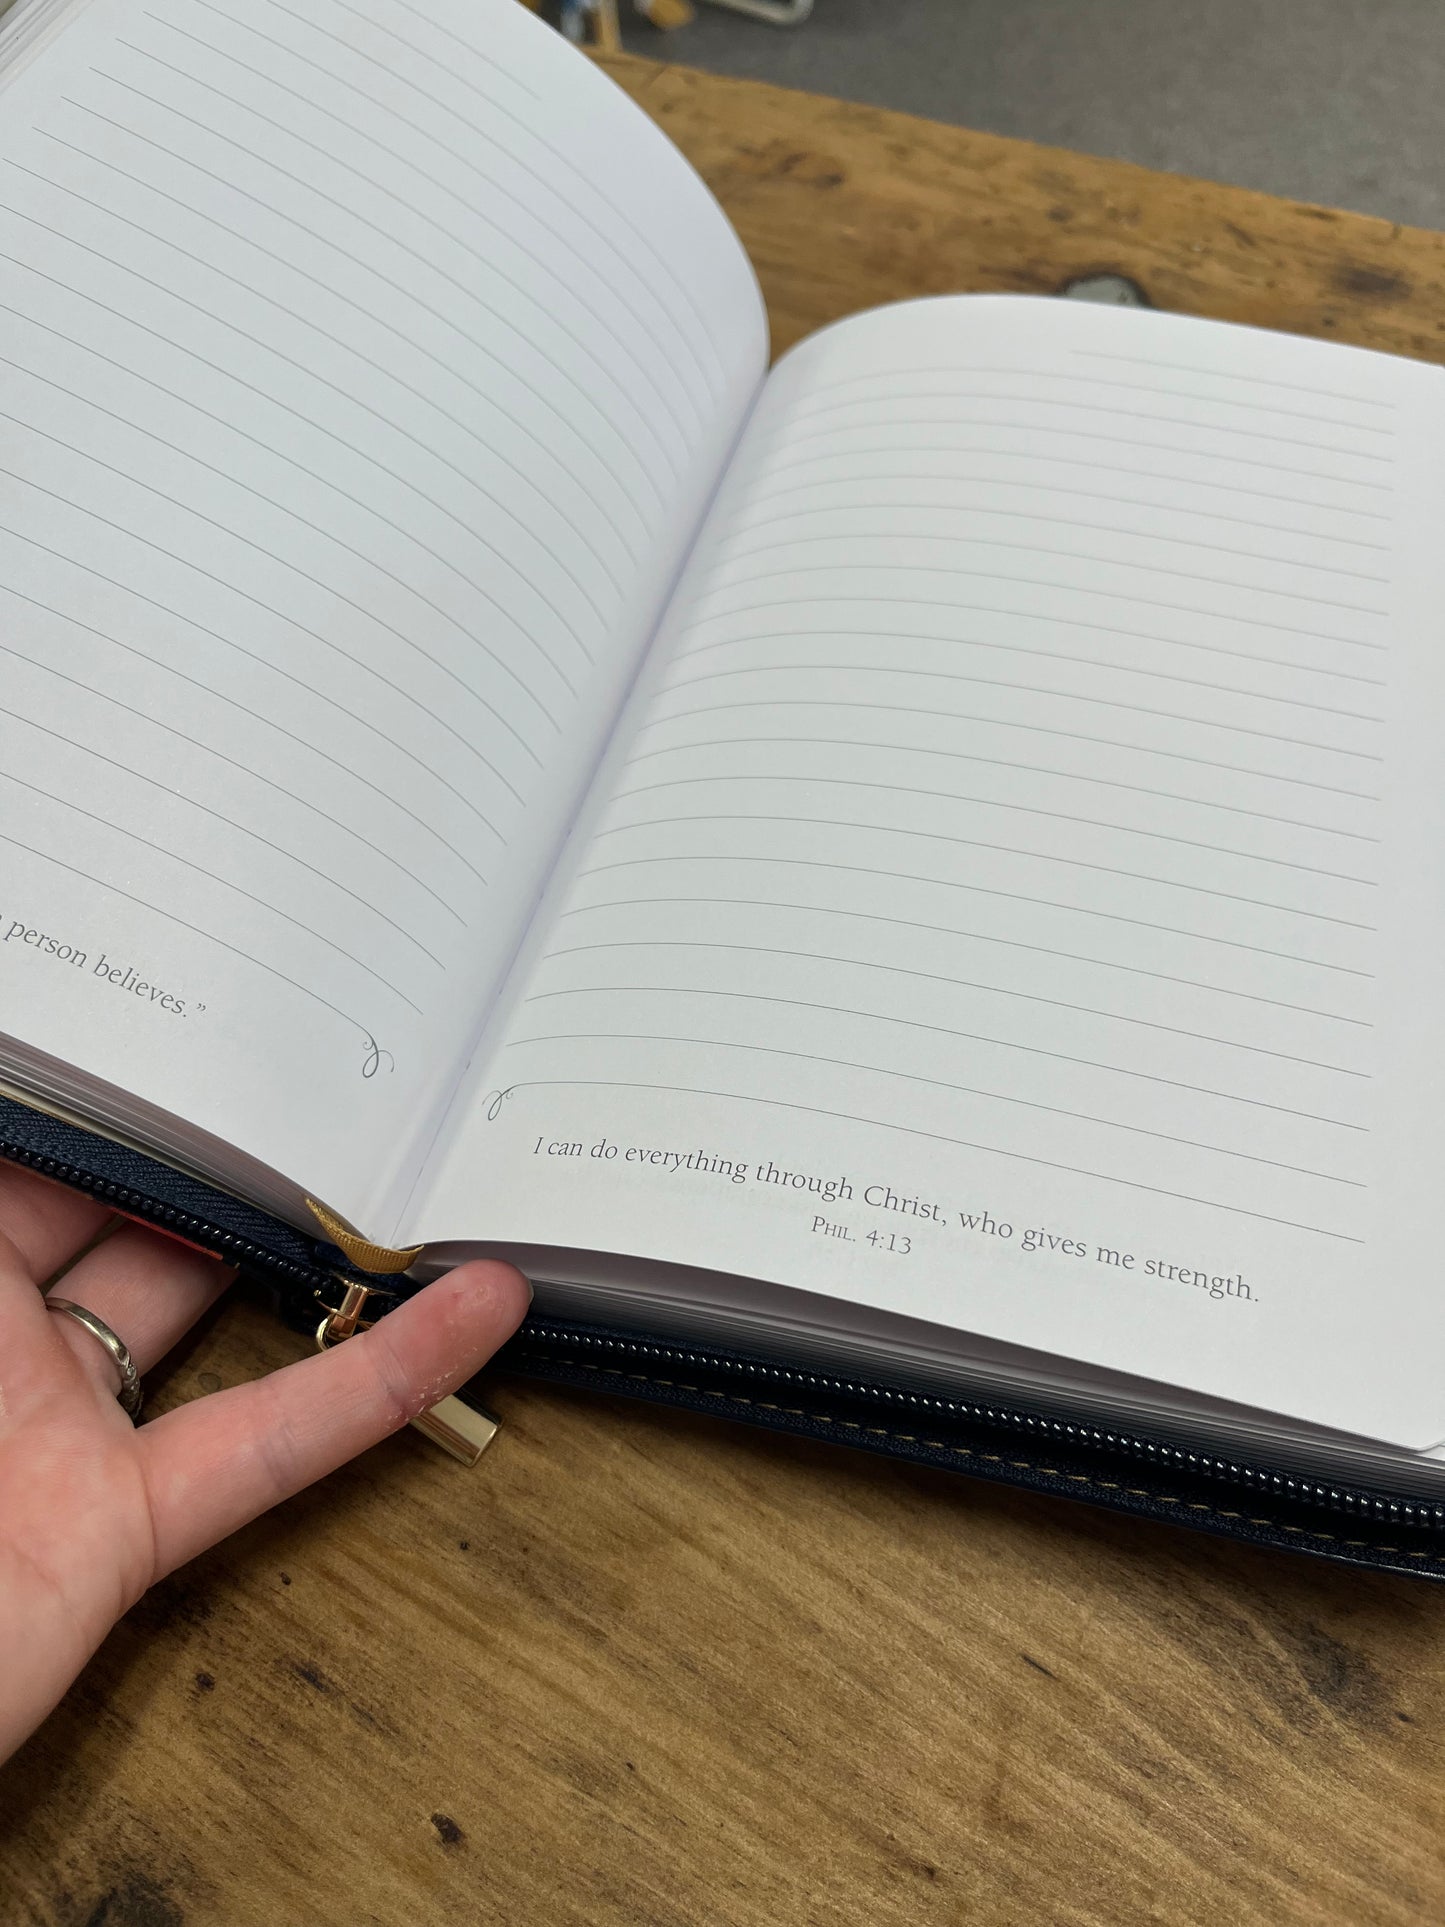 person believes.”
I can do everything through Christ, who gives me strength.
Phil. 4:13